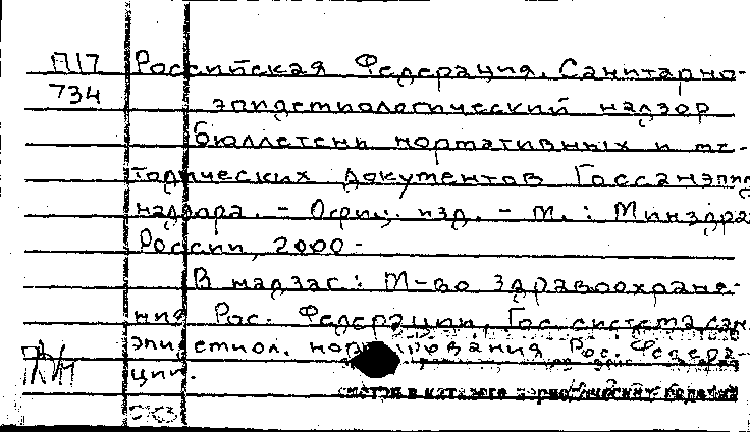 П17 Российская Федерация. Санитарно-
734 эпидемиологический надзор
Бюллетень нормативных и ме-
тодических документов Госсанэпид
надзора. - Офиц. изд. - М. : Минздрав
России, 2000 -
В надзаг.: М-во здравоохране-
ния Рос. Федерации, Гос. система сан.
эпидемиол. нормирования Рос. Федера-
ции.
смотри в каталоге периодических изданий